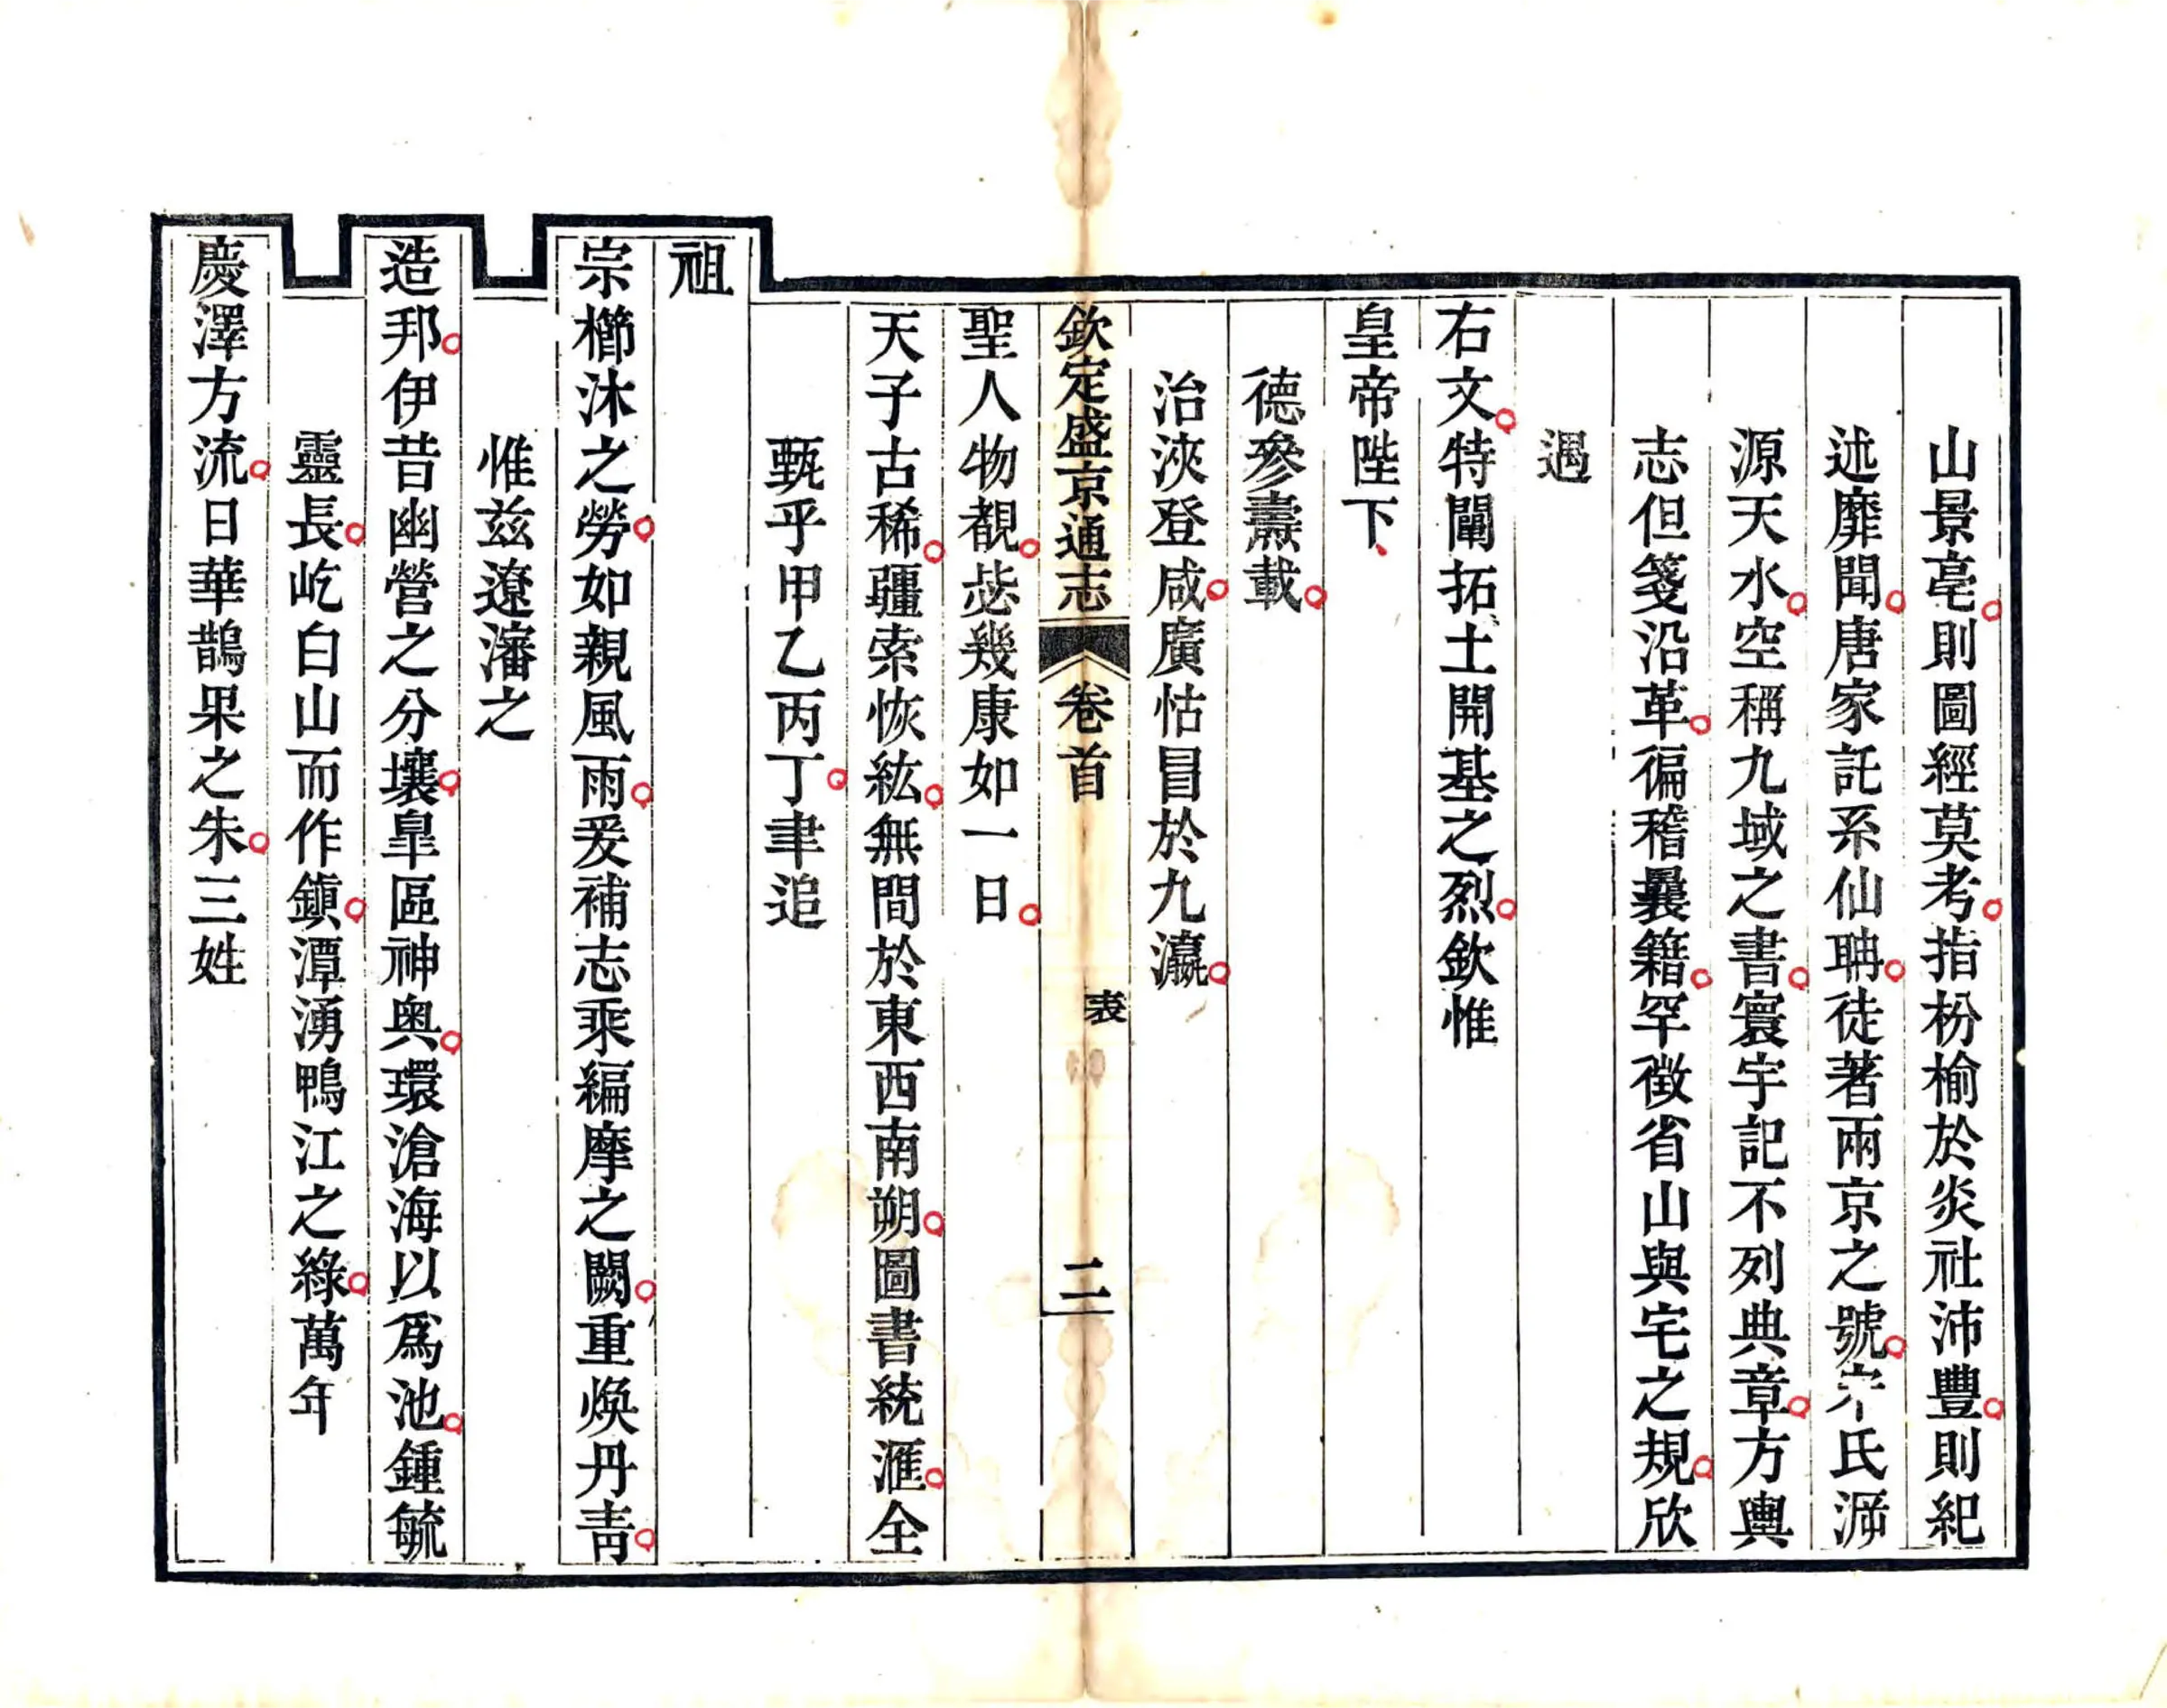 山景亳則圖經莫考指枌榆於炎社沛豐則紀
述靡聞唐家託系仙聃徒著兩京之號宋氏溯
源天水空稱九域之書寰宇記不列典章方輿
志但箋沿革徧稽曩籍罕徵省山與宅之規欣
遇
右文特闡拓土開基之烈欽惟
皇帝陛下
德參燾載
治浹登咸廣怙冒於九瀛
欽定盛京通志 卷首 表 二
聖人物覩毖幾康如一日
天子古稀疆索恢紘無間於東西南朔圖書統滙全
甄乎甲乙丙丁聿追
祖
宗櫛沐之勞如親風雨爰補志乘編摩之闕重煥丹青
惟茲遼瀋之
造邦伊昔幽營之分壤皐區神奥環滄海以爲池鍾毓
靈長屹白山而作鎭潭湧鴨江之綠萬年
慶澤方流日華鵲果之朱三姓